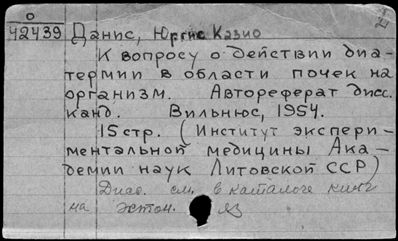 О
42439 Данис, Юргис Казио
К вопросу о действии диа-
термии в области почек на
организм. Автореферат дисс.
канд. Вильнюс, 1954.
15 стр. (Институт экспери-
ментальной медицины Ака-
демии наук Литовской ССР)
Дисс. см. в каталоге книг
на эстон. яз